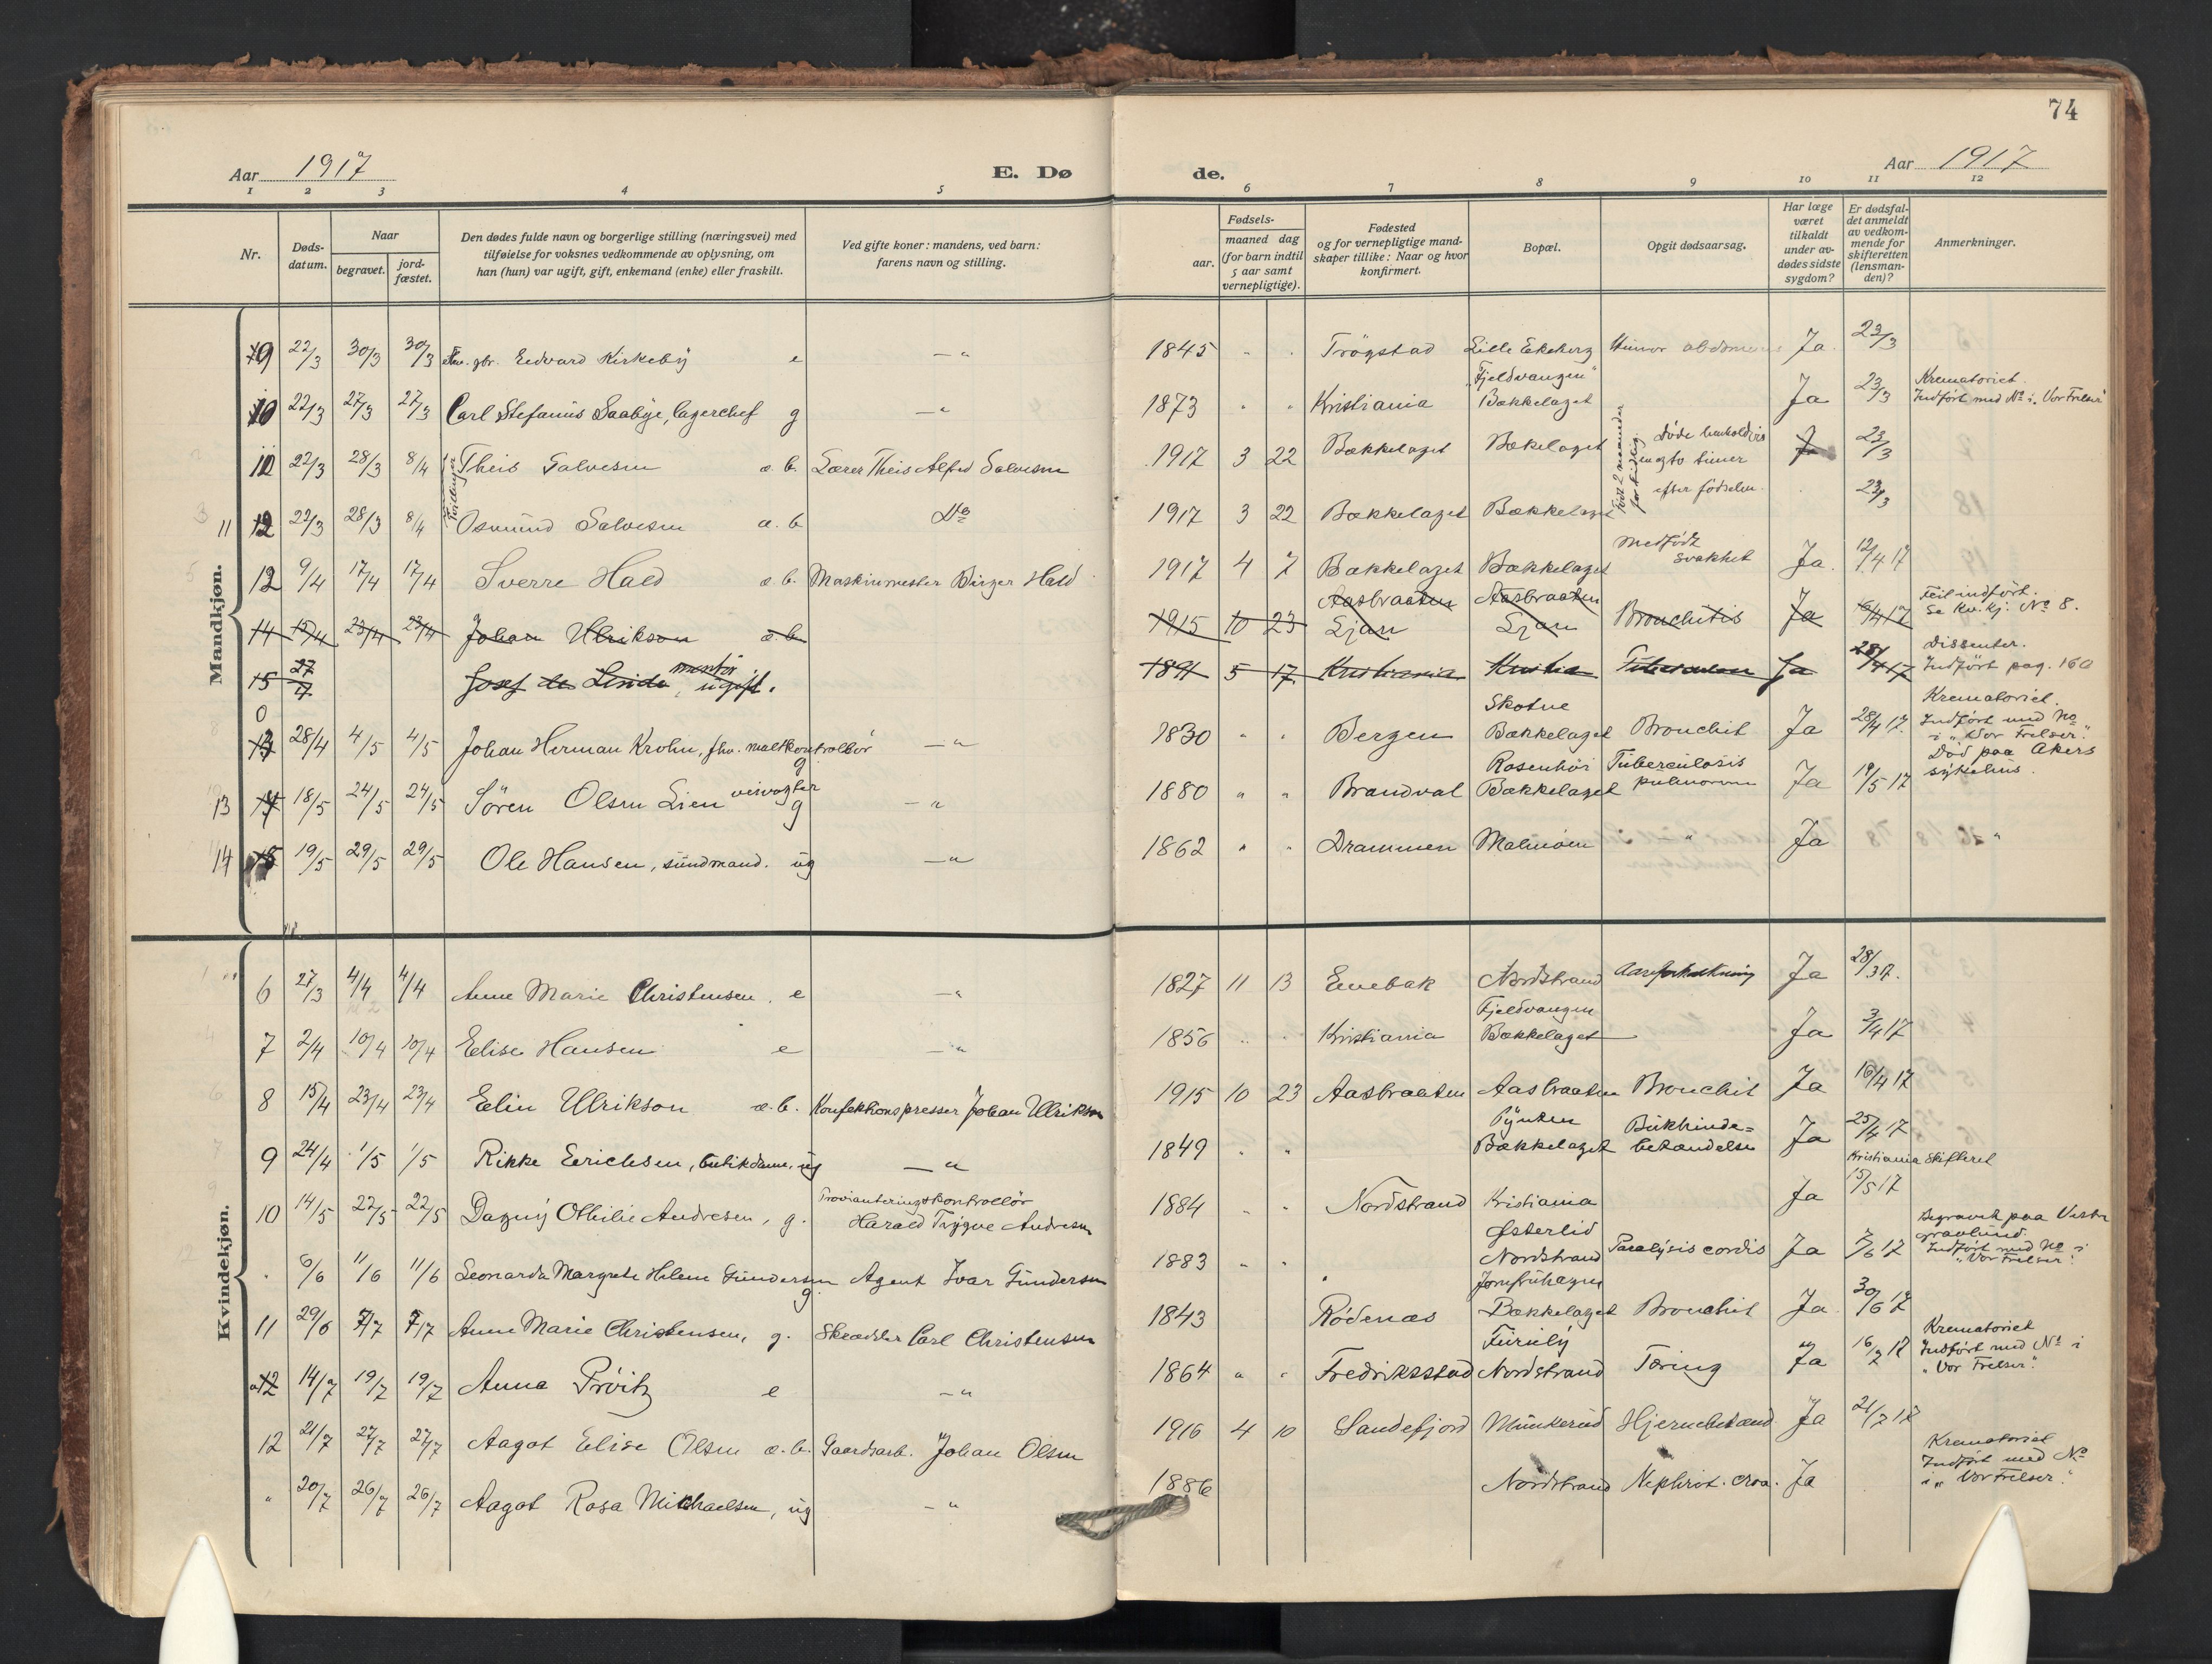 74
Aar 1917
E. Dø
de.
Aar 1917
1 2 3 4 5 6 7 8 9 10 11 12
Nr.
Døds-
datum.
Naar
begravet.
jord-
fæstet.
Den dødes fulde navn og borgerlige stilling (næringsvei) med
tilføielse for voksnes vedkommende av oplysning, om
han (hun) var ugift, gift, enkemand (enke) eller fraskilt.
Ved gifte koner: mandens, ved barn:
farens navn og stilling.
Fødsels-
aar.
maaned dag
(for barn indtil
5 aar samt
vernepligtige).
Fødested
og for vernepligtige mand-
skaper tillike: Naar og hvor
konfirmert.
Bopæl.
Opgit dødsaarsag.
Har læge
været
tilkaldt
under av-
dødes sidste
sygdom?
Er dødsfal-
det anmeldt
av vedkom-
mende for
skifteretten
(lensman-
den)?
Anmerkninger.
Mandkjøn.
9 22/3 30/3 30/3 fhv. gbr. Edvard Kirkeby e — " 1845 " " Trögstad Lille Ekeberg Tumor abdomen Ja 23/3
10 22/3 27/3 27/3 Carl Stefanus Saabye, lagerchef g — " 1873 " " Kristiania "Fjeldvangen" Bækkelaget Ja 23/3 Krematoriet.
Indført med No i "Vor Frelser"
22/3 28/3 8/4 Tvillinger Theis Salvesen æ. b. Lærer Theis Alfred Salvesen 1917 3 22 Bækkelaget Bækelaget Født 2 maaneder for tidlig. Døde henholdsvis en og to timer efter fødselen. 23/3
11 12 22/3 28/3 8/4 Osmund Salvesen æ. b Do 1917 3 22 Bækkelaget Bækkelaget 23/3
12 9/4 17/4 17/4 Sverre Hald æ. b. Maskinmester Birger Hald 1917 4 7 Bækkelaget Bækkelaget Medfødt svakhet Ja. 12/4 17
14 15/4 23/4 23/4 Johan Ulrikson æ. b 1915 10 23 Aasbraaten Ljan Aasbraaten Ljan Bronchitis Ja 16/4 17 Feil indført.
Se Kv. kj. No 8.
15 27/4 Josef de Linde, montør ugift. 1891 5 17 Kristiania Kristia Tuberculose Ja 28/4 17 Dissenter.
Indført pag. 160
0 28/4 4/5 4/5 Johan Herman Krohn, fhv. maltkontrollør g — " 1830 " " Bergen Skotne Bækkelaget Bronchit Ja 28/4 17. Krematoriet.
Indført med No
i "Vor Frelser".
13 18/5 24/5 24/5 Sören Olsen Lien veivogter g — " 1880 " " Brandval Rosenhöi Bækkelaget Tuberculosis pulmorum Ja 19/5 17 Död paa Akers
sykehus.
14 19/5 29/5 29/5 Ole Hansen, sundmand. ug — " 1862 " " Drammen Malmøen " Ja "
Kvindekjøn.
6 27/3 4/4 4/4 Anne Marie Christensen. e — " 1827 11 13 Enebak Nordstrand Aareforkalkning Ja 28/3 17.
7 2/4 10/4 10/4 Elise Hansen e — " 1856 " " Kristiania Fjeldvangen Bækkelaget — Ja 3/4 17
8 15/4 23/4 23/4 Elin Ulrikson æ. b. Konfektionspresser Johan Ulrikson 1915 10 23 Aasbraaten Aasbraaten Bronchit Ja 16/4 17
9 24/4 1/5 1/5 Rikke Erichsen, butikdame, ug — " 1849 " " Pynten Bækkelaget Bukhinde-betændelse Ja 25/4 17
10 14/5 22/5 22/5 Dagny Othilie Andresen, g. Provianteringskontrollør
Harald Trygve Andresen 1884 " " Nordstrand Kristiania Ja Kristiania Skifteret 15/5 17
" 6/6 11/6 11/6 Leonarda Margrete Helene Gundersen g. Agent Ivar Gundersen 1883 " " Østerlid Nordstrand Paralysis cordis Ja 7/6 17 Begravet paa Vestre
gravlund.
Indført med No i
"Vor Frelser".
11 29/6 7/7 7/7 Anne Marie Christensen, g. Skrædder Carl Christensen 1843 Rödenæs Jomfruhagen Bækkelaget Bronchit Ja 30/6 17
12 14/7 19/7 19/7 Anna Pröitz e — " 1864 " " Fredriksstad Furuly Nordstrand Tæring Ja 16/7 17 Krematoriet
Indført med No i
"Vor Frelser".
12 21/7 27/7 27/7 Aagot Elise Olsen æ. b. Gaardsarb. Johan Olsen 1916 4 10 Sandefjord Munkerud Hjernebetænd. Ja 21/7 17
" 20/7 26/7 26/7 Aagot Rosa Michaelsen, ug — " 1886 Nordstrand Nephrit. Ja Krematoriet
Indført med No
i "Vor Frelser".